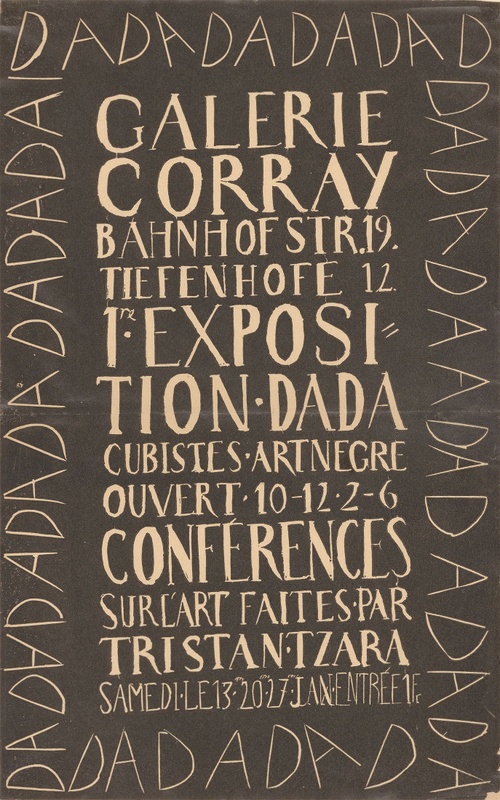 DADADADADAD
GALERIE
CORRAY
BAHNHOFSTR.19.
TIEFENHOFE 12.
1re EXPOSI=
TION·DADA
CUBISTES·ARTNEGRE
OUVERT·10-12·2-6
CONFÉRENCES
SUR L'ART FAITES·PAR
TRISTAN·TZARA
SAMEDI·LE 13·20·27·JAN·ENTRÉE 1Fr
DADADADADADADA
DADADADADADADA
DADADADAD